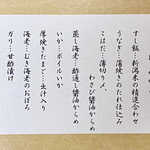 すし飯…新潟米の精進合わせ
うなぎ…蒲焼きのたれ込み
こはだ…薄切り〆、
わさび醤油からめ
蒸し海老…酢通し醤油からめ
いか…ボイルいか
厚焼きたまご…出汁入り
海老…むき海老のおぼろ
ガリ…甘酢漬け